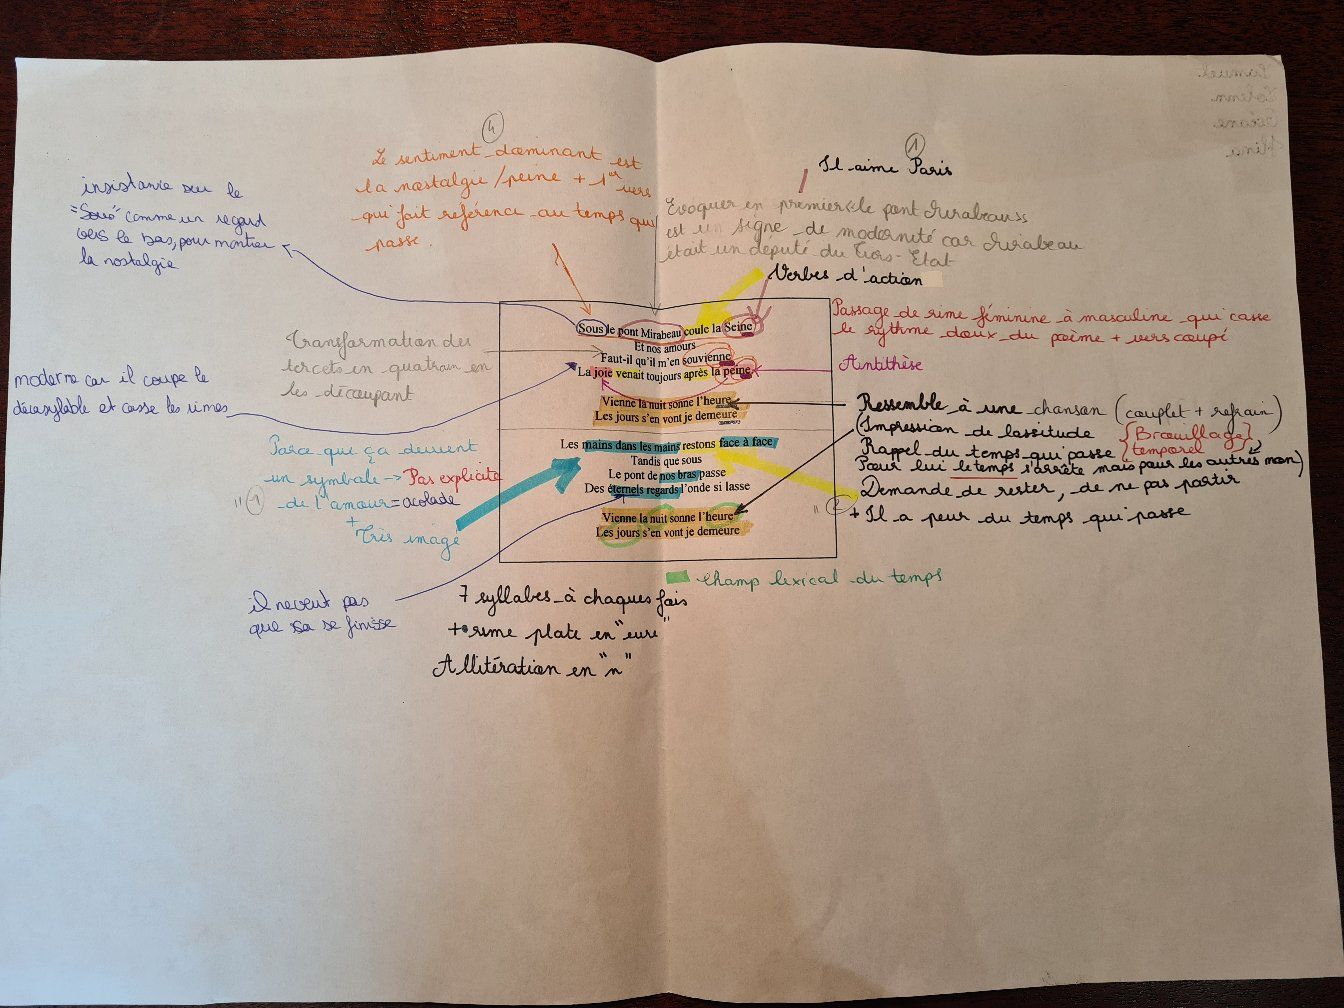 4
Le sentiment dominant est
la nostalgie / peine + 1er vers
qui fait reférence au temps qui
passe.
1
Il aime Paris
Evoquer en premier « le pont Mirabeau »
est un signe de modernité car Mirabeau
était un député du Tiers-Etat
Verbes d'action
insistance sur le
"Sous" comme un regard
vers le bas, pour montrer
la nostalgie
Passage de rime féminine à masculine qui casse
le rythme doux du poème + vers coupé
Antithèse
Transformation des
tercets en quatrain en
les découpant
moderne car il coupe le
décasyllabe et casse les rimes
Sous le pont Mirabeau coule la Seine
Et nos amours
Faut-il qu'il m'en souvienne
La joie venait toujours après la peine
Vienne la nuit sonne l'heure
Les jours s'en vont je demeure
Les mains dans les mains restons face à face
Tandis que sous
Le pont de nos bras passe
Des éternels regards l'onde si lasse
Vienne la nuit sonne l'heure
Les jours s'en vont je demeure
Ressemble à une chanson (couplet + refrain)
(Impression de lassitude
Rappel du temps qui passe {Brouillage} {temporel}
Pour lui le temps s'arrête mais pour les autres non)
" 2
Demande de rester, de ne pas partir
+ Il a peur du temps qui passe
Parce que ça devient
un symbole -> Pas explicite
" 1 de l'amour = acolade
+
Très imagé
il ne veut pas
que sa se finisse
champ lexical du temps
7 syllabes à chaques fois
+ rime plate en "eure"
Allitération en "n"
Océane